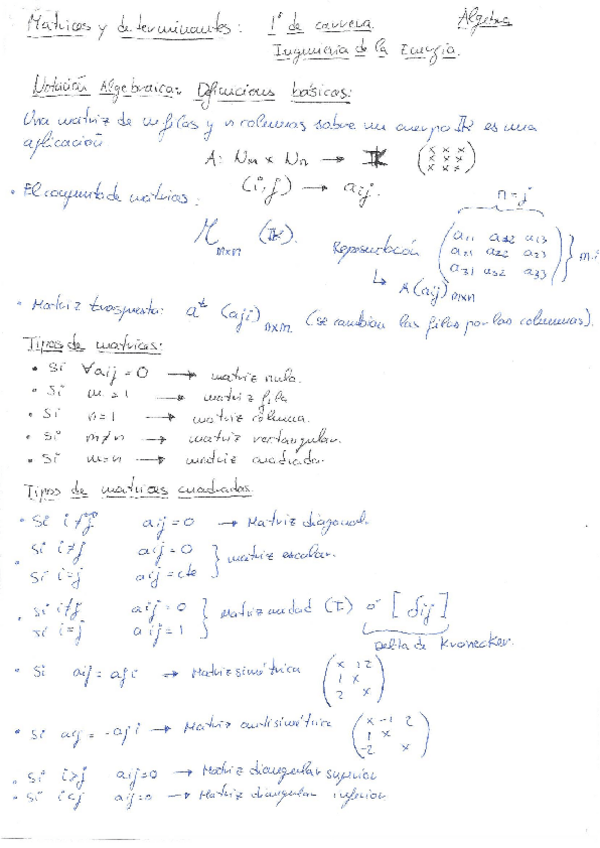 Matrices y determinantes: 1º de carrera. Algebra
Ingenieria de la Energía.
Notación Algebraica: Definiciones básicas:
Una matriz de m filas y n columnas sobre un cuerpo K es una
aplicación
A: Nm x Nn → K (x x x
x x x
x x x)
(i,j) → aij.
• El conjunto de matrices:
M mxn (K). Representación
n=j
(a11 a12 a13
a21 a22 a23
a31 a32 a33) } m=i
↳ A(aij) mxn
• Matriz traspuesta: a^t (aji) nxm (se cambian las filas por las columnas).
Tipos de matrices:
• Si ∀aij = 0 → matriz nula.
• Si m = 1 → matriz fila
• Si n=1 → matriz columna.
• Si m≠n → matriz rectangular.
• Si m=n → matriz cuadrada.
Tipos de matrices cuadradas
• Si i≠j aij=0 → Matriz diagonal.
• Si i≠j aij=0 } matriz escalar.
Si i=j aij=cte
• Si i≠j aij=0 } Matriz unidad (I) ó [δij]
Si i=j aij=1
Delta de Kronecker.
• Si aij=aji → Matriz simétrica (x 1 2
1 x
2 x)
• Si aij=-aji → Matriz antisimétrica (x -1 2
1 x
-2 x)
• Si i>j aij=0 → Matriz triangular superior
• Si i<j aij=0 → Matriz triangular inferior